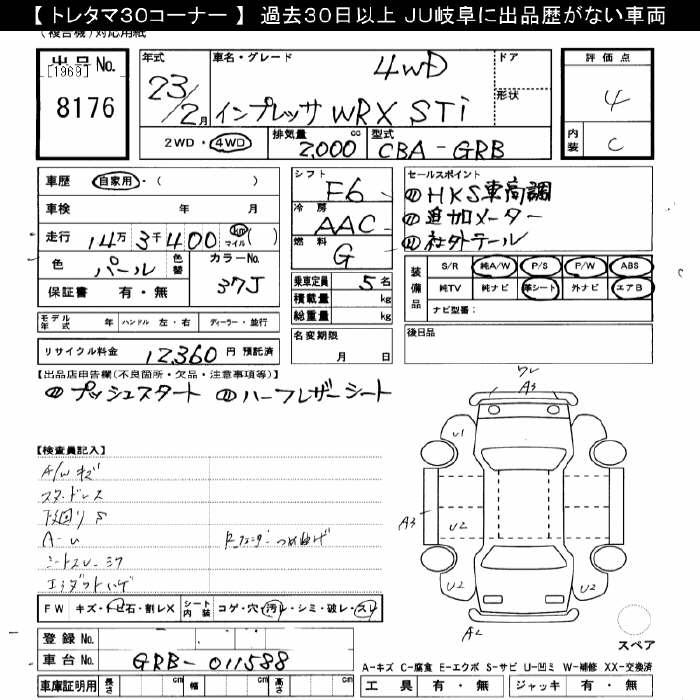 【 トレタマ30コーナー 】 過去30日以上 JU岐阜に出品歴がない車両
(複合機)対応用紙
出品 No.
[1969]
8176
年式
23/2月
車名・グレード
4WD
インプレッサ WRX STi
ドア
形状
2WD・4WD
排気量 cc
2,000
型式
CBA-GRB
評価点
4
内装
C
車歴 自家用・( )
車検 年 月
走行 14万3千400 km マイル ( )
色 パール 色替 カラーNo. 37J
保証書 有・無
シフト F6
冷房 AAC
燃料 G
乗車定員 5名
積載量 kg
総重量 kg
名変期限
月 日
セールスポイント
① HKS車高調
② 追加メーター
③ 社外テール
装備品
S/R 純A/W P/S P/W ABS
純TV 純ナビ 革シート 外ナビ エアB
ナビ型番:
後日品
モデル年式 年 ハンドル 左・右 ディーラー・並行
リサイクル料金 12,360 円 預託済
【出品店申告欄(不良箇所・欠品・注意事項等)】
① プッシュスタート ② ハーフレザーシート
ワレ
A3
U1
A3
U2
U2
U2
A2
【検査員記入】
A/Wキズ
スタッドレス
下回りS
A-U
シートスレ-シワ
エアダクトハゲ
Rフェンダーつめ曲げ
FW キズ・トビ石・割レX シート内装 コゲ・穴・汚レ・シミ・破レ・スレ
登録 No.
車台 No. GRB-011588
車庫証明用 長さ cm 幅 cm 高さ cm
スペア
A-キズ C-腐食 E-エクボ S-サビ U-凹ミ W-補修 XX-交換済
工具 有・無 ジャッキ 有・無